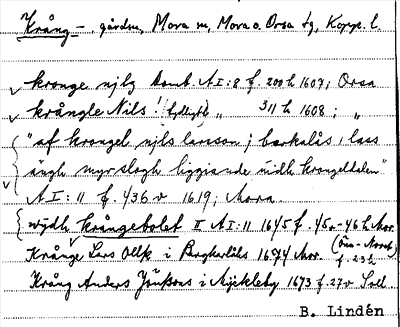 Krång –, gården, Mora sn, Mora o. Orsa tg, Kopp. l.
kronge njlz Domb A I:8 f. 200 h 1607; Orsa
krångle Nils ! (tydligt) „ 311 h 1608; „
"af krongel njls larsson j barkalås, lass
ängh myrslogh liggiande widh krongeldalen"
A I:11 f. 436 v 1619; Mora
wijdh krångebolet II A I:11 1645 f. 45v–46h Mor.
Krånge Lars Ollss i Bergkarlås 1674 Mor. f. 23 h
Krång Anders Jönssons i Nyckleby 1673 f. 27 v Soll.
B. Lindén